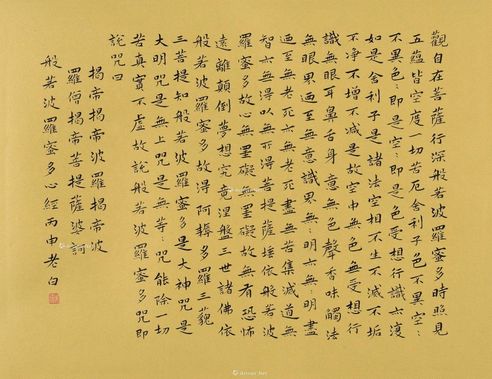 觀自在菩薩行深般若波羅蜜多時照見
五蘊皆空度一切苦厄舍利子色不異空:
不異色:即是空:即是色受想行識亦復
如是舍利子是諸法空相不生不滅不垢
不淨不增不減是故空中無色無受想行
識無眼耳鼻舌身意無色聲香味觸法
無眼界乃至無意識界無:明亦無:明盡
乃至無老死亦無老死盡無苦集滅道無
智亦無得以無所得菩提薩埵依般若波
羅蜜多故心無罣礙無罣礙故無有恐怖
遠離顛倒夢想究竟涅盤三世諸佛依
般若波羅蜜多故得阿耨多羅三藐
三菩提知般若波羅蜜多是大神咒是
大明咒是無上咒是無等:咒能除一切
苦真實不虛故說般若波羅蜜多咒即
說咒曰
揭帝揭帝波羅揭帝波
羅僧揭帝菩提薩婆訶
般若波羅蜜多心經丙申老白